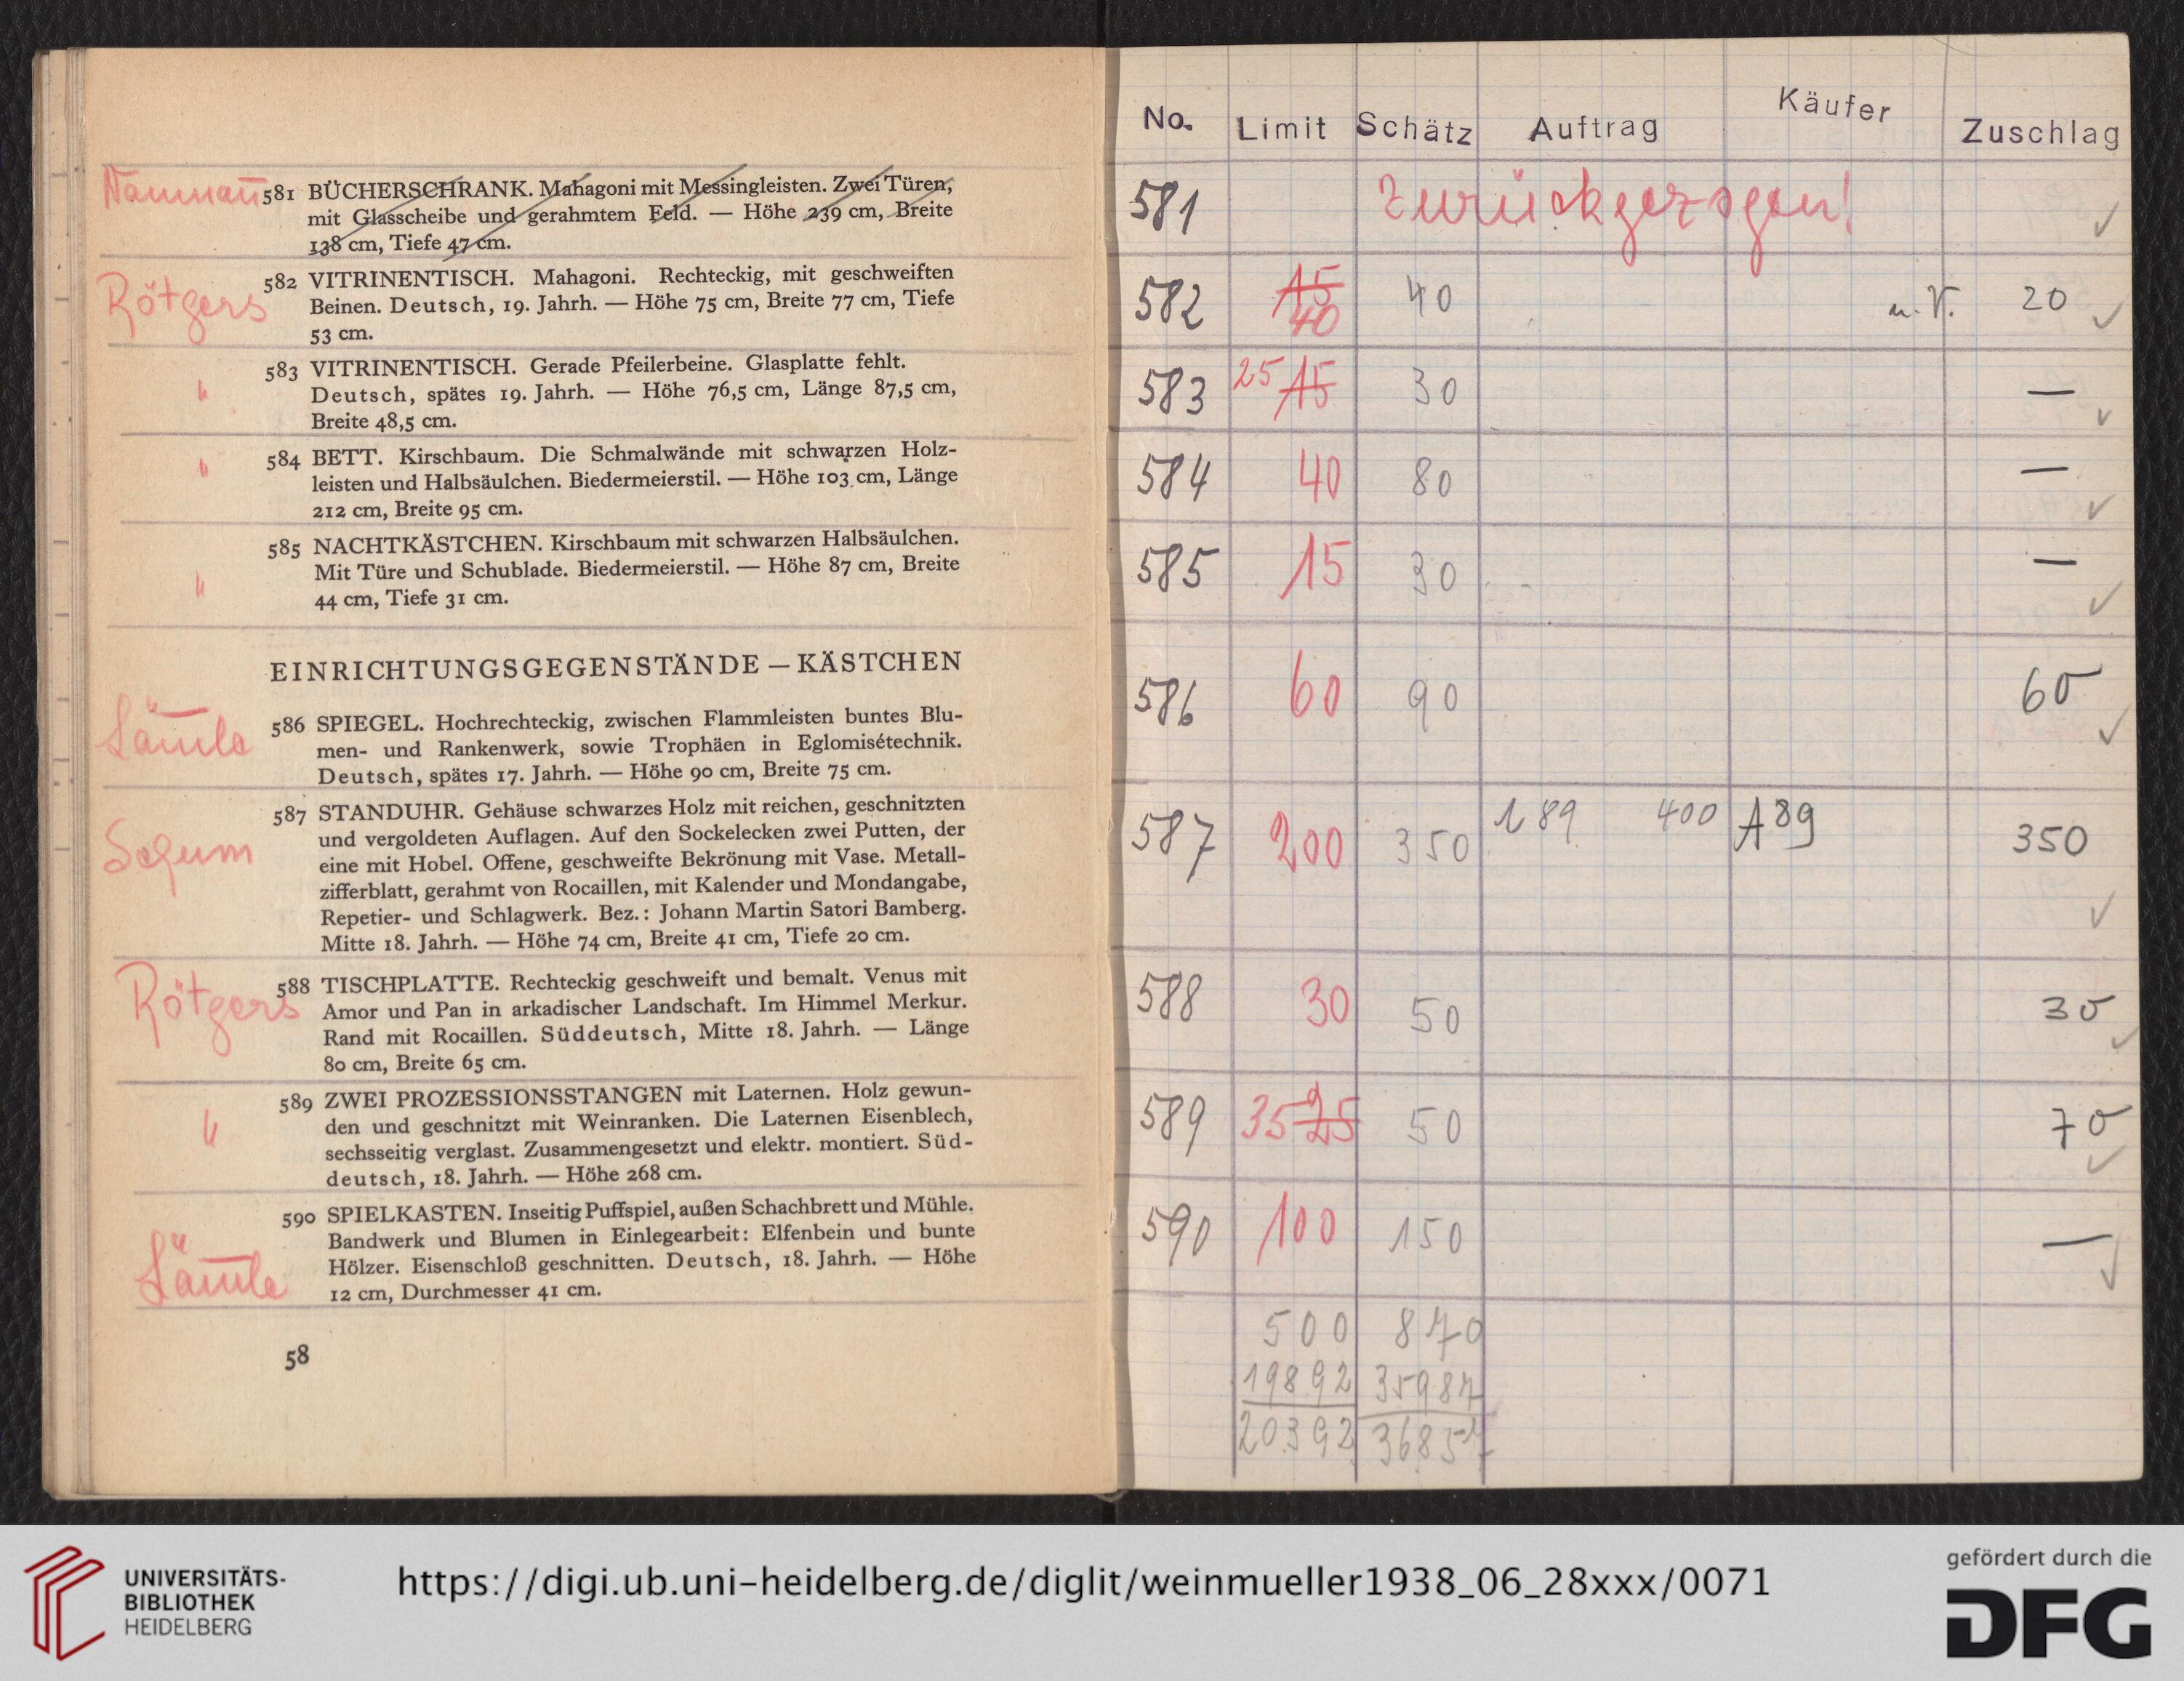 581 BÜCHERSCHRANK. Mahagoni mit Messingleisten. Zwei Türen,
mit Glasscheibe und gerahmtem Feld. — Höhe 239 cm, Breite
138 cm, Tiefe 47 cm.
Rötgers
582 VITRINENTISCH. Mahagoni. Rechteckig, mit geschweiften
Beinen. Deutsch, 19. Jahrh. — Höhe 75 cm, Breite 77 cm, Tiefe
53 cm.
"
583 VITRINENTISCH. Gerade Pfeilerbeine. Glasplatte fehlt.
Deutsch, spätes 19. Jahrh. — Höhe 76,5 cm, Länge 87,5 cm,
Breite 48,5 cm.
"
584 BETT. Kirschbaum. Die Schmalwände mit schwarzen Holz-
leisten und Halbsäulchen. Biedermeierstil. — Höhe 103 cm, Länge
212 cm, Breite 95 cm.
"
585 NACHTKÄSTCHEN. Kirschbaum mit schwarzen Halbsäulchen.
Mit Türe und Schublade. Biedermeierstil. — Höhe 87 cm, Breite
44 cm, Tiefe 31 cm.
EINRICHTUNGSGEGENSTÄNDE — KÄSTCHEN
586 SPIEGEL. Hochrechteckig, zwischen Flammleisten buntes Blu-
men- und Rankenwerk, sowie Trophäen in Eglomisétechnik.
Deutsch, spätes 17. Jahrh. — Höhe 90 cm, Breite 75 cm.
587 STANDUHR. Gehäuse schwarzes Holz mit reichen, geschnitzten
und vergoldeten Auflagen. Auf den Sockelecken zwei Putten, der
eine mit Hobel. Offene, geschweifte Bekrönung mit Vase. Metall-
zifferblatt, gerahmt von Rocaillen, mit Kalender und Mondangabe,
Repetier- und Schlagwerk. Bez.: Johann Martin Satori Bamberg.
Mitte 18. Jahrh. — Höhe 74 cm, Breite 41 cm, Tiefe 20 cm.
Rötgers
588 TISCHPLATTE. Rechteckig geschweift und bemalt. Venus mit
Amor und Pan in arkadischer Landschaft. Im Himmel Merkur.
Rand mit Rocaillen. Süddeutsch, Mitte 18. Jahrh. — Länge
80 cm, Breite 65 cm.
"
589 ZWEI PROZESSIONSSTANGEN mit Laternen. Holz gewun-
den und geschnitzt mit Weinranken. Die Laternen Eisenblech,
sechsseitig verglast. Zusammengesetzt und elektr. montiert. Süd-
deutsch, 18. Jahrh. — Höhe 268 cm.
590 SPIELKASTEN. Inseitig Puffspiel, außen Schachbrett und Mühle.
Bandwerk und Blumen in Einlegearbeit: Elfenbein und bunte
Hölzer. Eisenschloß geschnitten. Deutsch, 18. Jahrh. — Höhe
12 cm, Durchmesser 41 cm.
58
No. Limit Schätz Auftrag Käufer Zuschlag
581 Zurückgezogen! ✓
582 15 40 40 u. V. 20 ✓
583 25 15 30 — ✓
584 40 80 — ✓
585 15 30 — ✓
586 60 90 60 ✓
587 200 350 89 400 A 89 350 ✓
588 30 50 30 ✓
589 35 25 50 70 ✓
590 100 150 — ✓
500 870
19892 35987
20392 36857
UNIVERSITÄTS-
BIBLIOTHEK
HEIDELBERG
https://digi.ub.uni-heidelberg.de/diglit/weinmueller1938_06_28xxx/0071
gefördert durch die
DFG